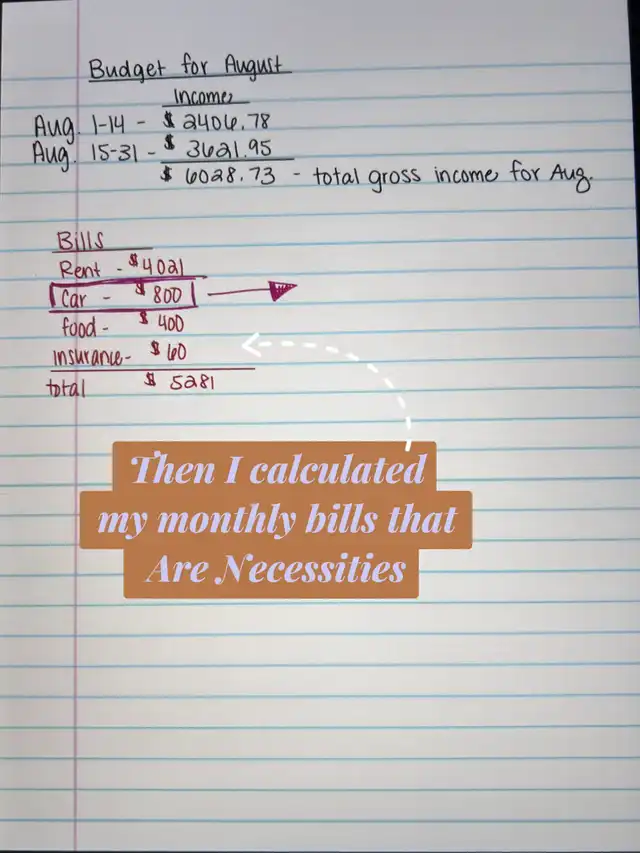 Budget for August
Income
Aug. 1-14 - $ 2406.78
Aug. 15-31 - $ 3621.95
$ 6028.73 - total gross income for Aug.
Bills
Rent - $4021
Car - $ 800
food - $ 400
insurance - $ 60
total $ 5281
Then I calculated
my monthly bills that
Are Necessities